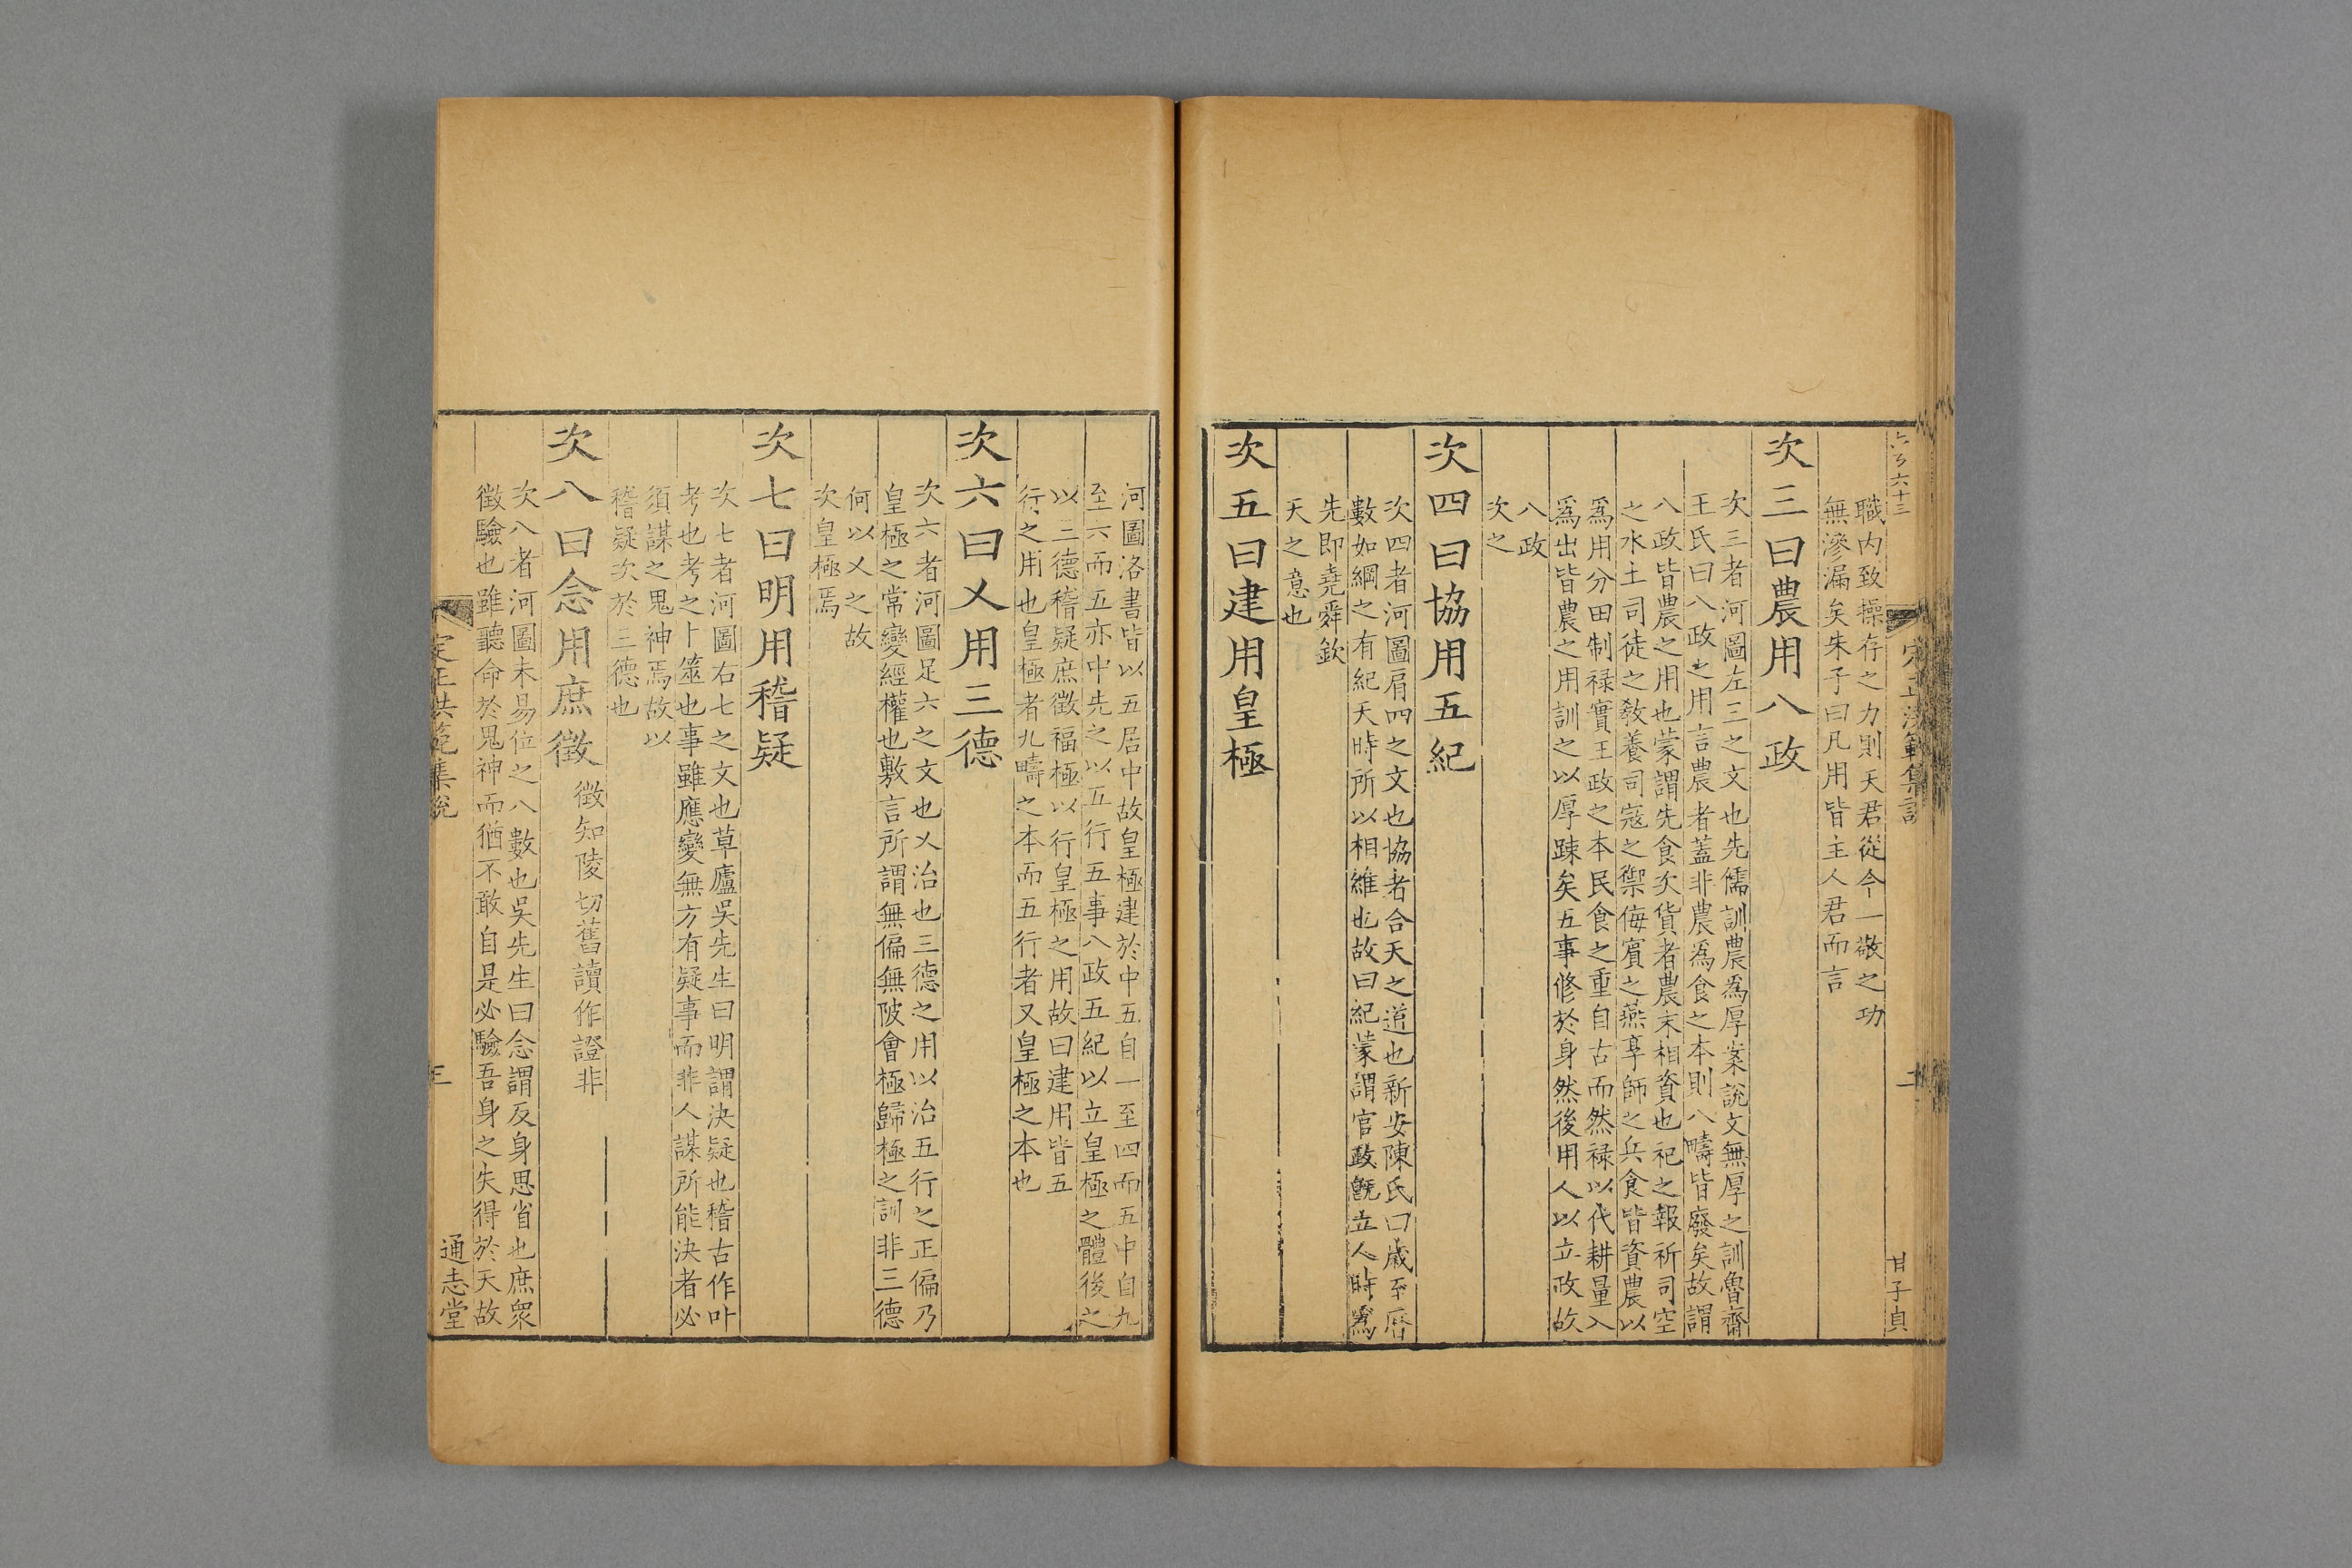 職内致操存之力則天君從令一敬之功
無滲漏矣朱子曰凡用皆主人君而言
次三曰農用八政
次三者河圖左三之文也先儒訓農爲厚案說文無厚之訓魯齋
王氏曰八政之用言農者蓋非農爲食之本則八疇皆廢矣故謂
八政皆農之用也蒙謂先食次貨者農末相資也祀之報祈司空
之水土司徒之敎養司寇之禦侮賓之燕享師之兵食皆資農以
爲用分田制禄實王政之本民食之重自古而然禄以代耕量入
爲出皆農之用訓之以厚踈矣五事修於身然後用人以立政故
八政
次之
次四曰協用五紀
次四者河圖肩四之文也協者合天之道也新安陳氏曰歲至曆
數如綱之有紀天時所以相維也故曰紀蒙謂官政旣立人時爲
先即堯舜欽
天之意也
次五曰建用皇極
河圖洛書皆以五居中故皇極建於中五自一至四而五中自九
至六而五亦中先之以五行五事八政五紀以立皇極之體後之
以三德稽疑庶徵福極以行皇極之用故曰建用皆五
行之用也皇極者九疇之本而五行者又皇極之本也
次六曰乂用三德
次六者河圖足六之文也乂治也三德之用以治五行之正偏乃
皇極之常變經權也敷言所謂無偏無陂會極歸極之訓非三德
何以乂之故
次皇極焉
次七曰明用稽疑
次七者河圖右七之文也草廬吳先生曰明謂決疑也稽古作卟
考也考之卜筮也事雖應變無方有疑事而非人謀所能決者必
須謀之鬼神焉故以
稽疑次於三德也
次八曰念用庶徵 徵知陵切舊讀作證非
次八者河圖未易位之八數也吳先生曰念謂反身思省也庶眾
徵驗也雖聽命於鬼神而猶不敢自是必驗吾身之失得於天故
定正洪範集說
三
通志堂